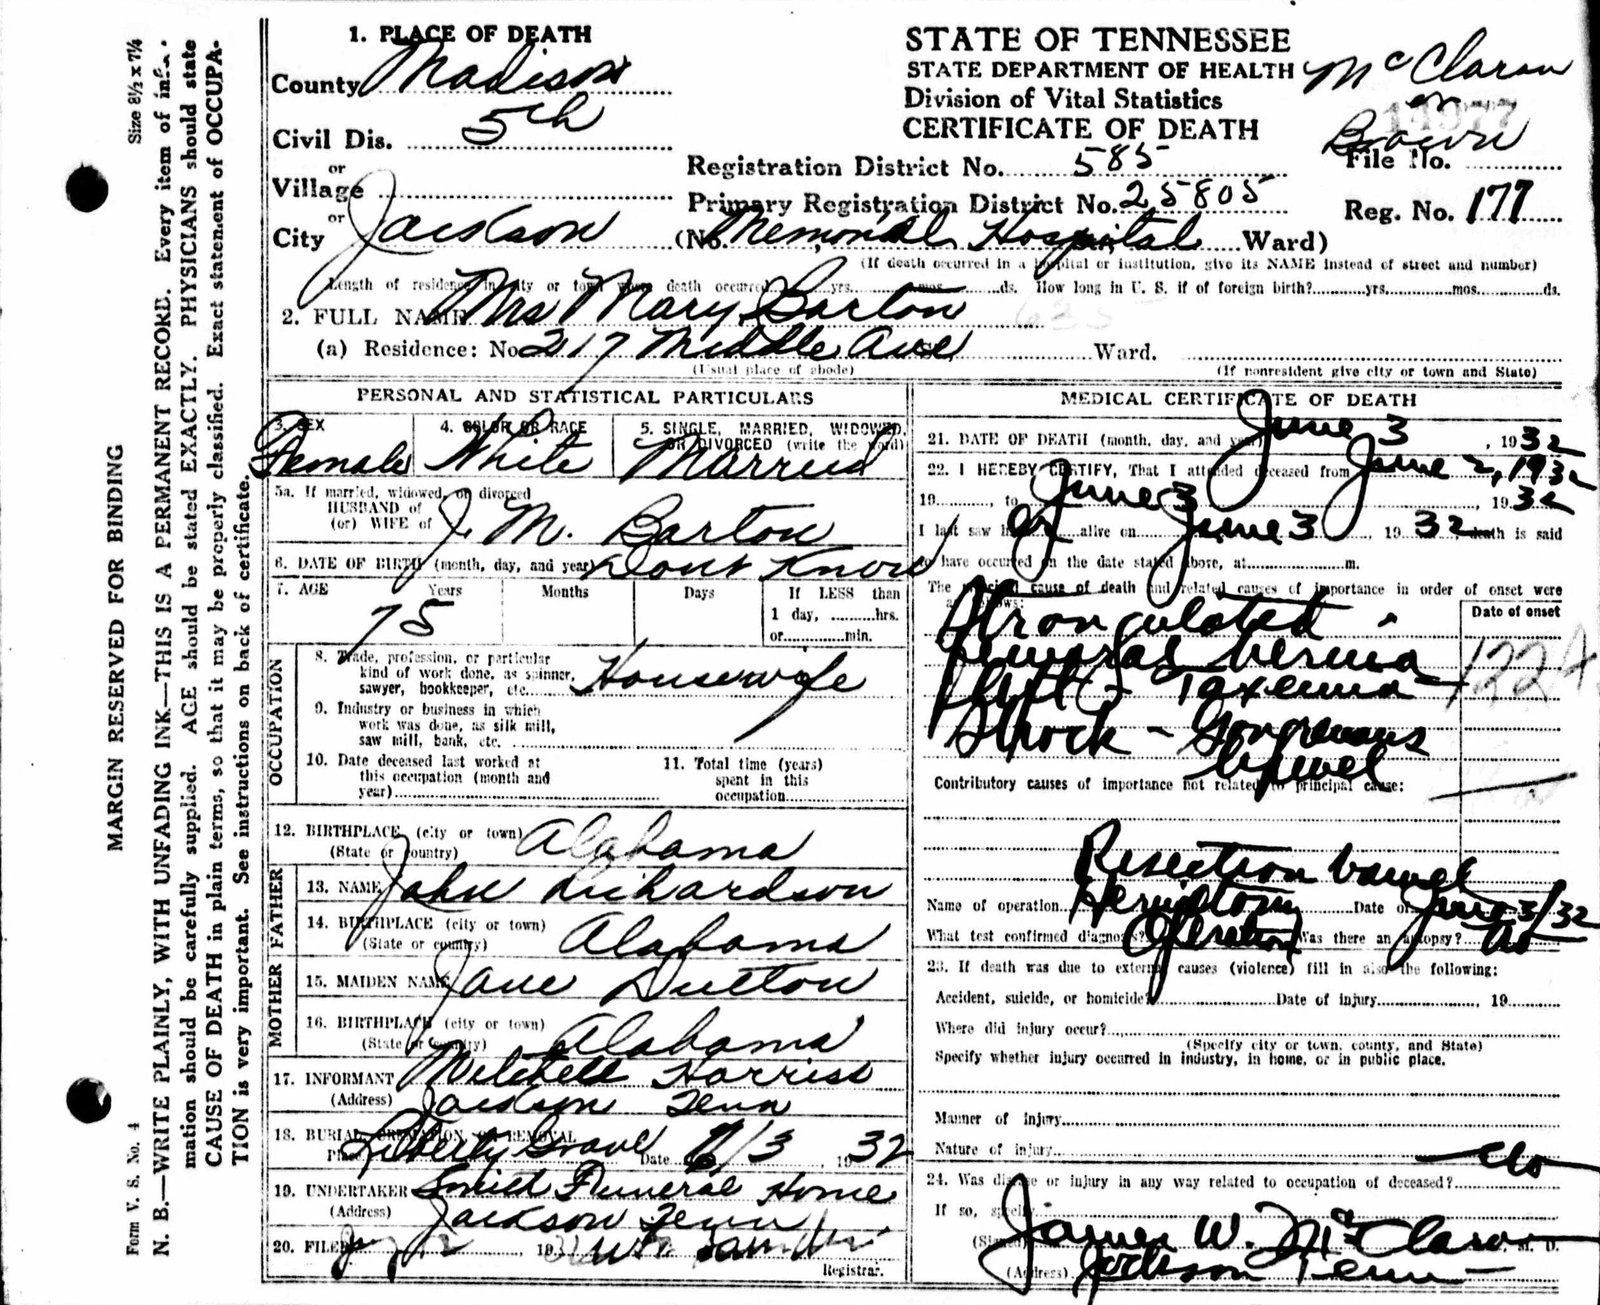 MARGIN RESERVED FOR BINDING
Size 8½ x 7¼
N. B.—WRITE PLAINLY, WITH UNFADING INK—THIS IS A PERMANENT RECORD. Every item of infor-
mation should be carefully supplied. AGE should be stated EXACTLY. PHYSICIANS should state
CAUSE OF DEATH in plain terms, so that it may be properly classified. Exact statement of OCCUPA-
TION is very important. See instructions on back of certificate.
Form V. S. No. 4
1. PLACE OF DEATH
County Madison
Civil Dis. 5th
or
Village
or
City Jackson
STATE OF TENNESSEE
STATE DEPARTMENT OF HEALTH
Division of Vital Statistics
CERTIFICATE OF DEATH
McClaran
or
Brown
14977
File No.
Registration District No. 585
Primary Registration District No. 25805
Reg. No. 177
(No. Memorial Hospital Ward)
(If death occurred in a hospital or institution, give its NAME instead of street and number)
Length of residence in city or town where death occurred yrs. mos. ds. How long in U. S. if of foreign birth? yrs. mos. ds.
2. FULL NAME Mrs Mary Barton
(a) Residence: No. 217 Middle Ave St. Ward.
(Usual place of abode)
(If nonresident give city or town and State)
PERSONAL AND STATISTICAL PARTICULARS
3. SEX
Female
4. COLOR OR RACE
White
5. SINGLE, MARRIED, WIDOWED,
OR DIVORCED (write the word)
Married
5a. If married, widowed, or divorced
HUSBAND of
(or) WIFE of J. M. Barton
6. DATE OF BIRTH (month, day, and year) Dont Know
7. AGE Years Months Days If LESS than
75
1 day, hrs.
or min.
OCCUPATION
8. Trade, profession, or particular
kind of work done, as spinner,
sawyer, bookkeeper, etc. Housewife
9. Industry or business in which
work was done, as silk mill,
saw mill, bank, etc.
10. Date deceased last worked at
this occupation (month and
year)
11. Total time (years)
spent in this
occupation
12. BIRTHPLACE (city or town) Alabama
(State or country)
FATHER
13. NAME John Richardson
14. BIRTHPLACE (city or town) Alabama
(State or country)
MOTHER
15. MAIDEN NAME Jane Dutton
16. BIRTHPLACE (city or town) Alabama
(State or country)
17. INFORMANT Mitchell Harriss
(Address) Jackson Tenn
18. BURIAL, CREMATION, OR REMOVAL
Place Liberty Grove Date 6/3 1932
19. UNDERTAKER Smith Funeral Home
(Address) Jackson Tenn
20. FILED 12, 193
Registrar.
MEDICAL CERTIFICATE OF DEATH
21. DATE OF DEATH (month, day, and year) June 3, 1932
22. I HEREBY CERTIFY, That I attended deceased from June 2, 1932
19 , to June 3, 1932
I last saw her alive on June 3, 1932, death is said
to have occurred on the date stated above, at m.
The principal cause of death and related causes of importance in order of onset were
as follows:
Date of onset
Strangulated
Femoral hernia
Left - Toxemia
Shock - Gangrenous
bowel
122A
Contributory causes of importance not related to principal cause:
Resection bowel
Name of operation Herniotomy Date of June 3/32
What test confirmed diagnosis? Operation Was there an autopsy? no
23. If death was due to external causes (violence) fill in also the following:
Accident, suicide, or homicide? Date of injury , 19
Where did injury occur?
(Specify city or town, county, and State)
Specify whether injury occurred in industry, in home, or in public place.
Manner of injury
Nature of injury
24. Was disease or injury in any way related to occupation of deceased? No
If so, specify
(Signed) James W. McClaran, M. D.
(Address) Jackson Tenn